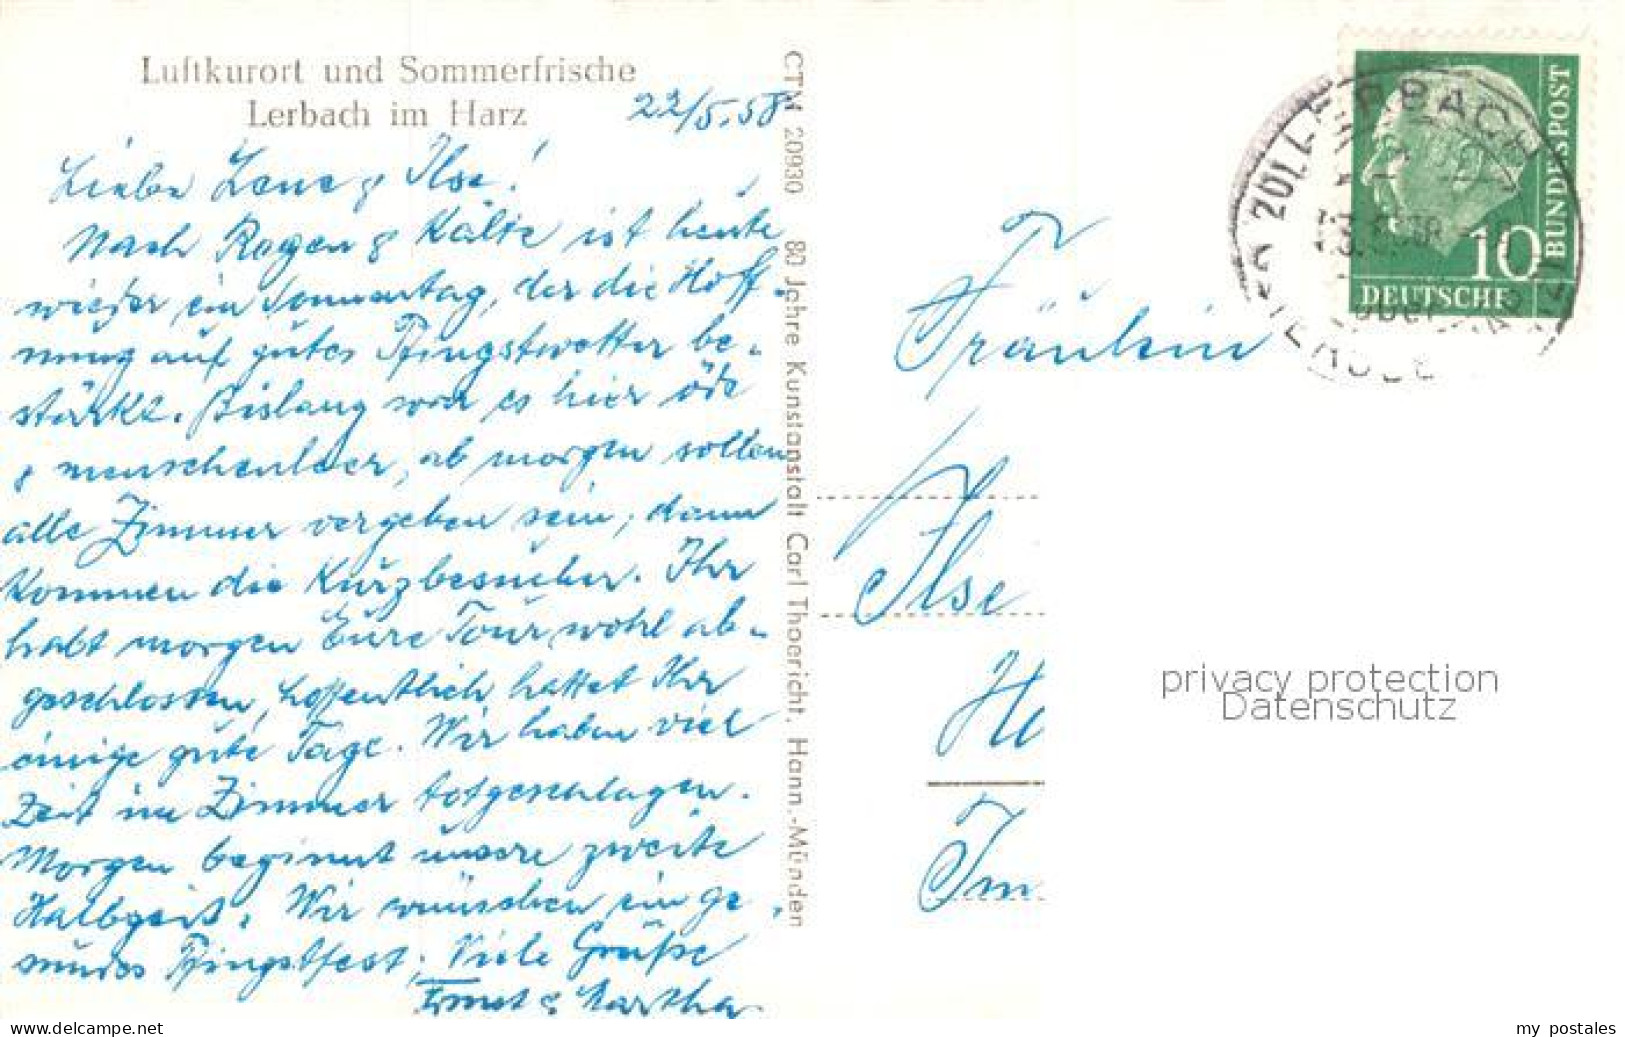 Luftkurort und Sommerfrische
Lerbach im Harz
22/5.58
Liebe Lene & Ilse!
Nach Regen & Kälte ist heute
wieder ein Sonnentag, der die Hoff-
nung auf gutes Pfingstwetter be-
stärkt. Bislang war es hier öde
& menschenleer, ab morgen sollen
alle Zimmer vergeben sein, dann
kommen die Kurzbesucher. Ihr
habt morgen Eure Tour wohl ab-
geschlossen, hoffentlich hattet Ihr
einige gute Tage. Wir haben viel
Zeit im Zimmer totgeschlagen.
Morgen beginnt unsere zweite
Halbzeit. Wir wünschen ein ge-
sundes Pfingstfest. Viele Grüße
Ernst & Martha
CTM 20930 80 Jahre Kunstanstalt Carl Thoericht, Hann.-Münden
Fräulein
Ilse
Ha
Im
10
DEUTSCHE
BUNDESPOST
LERBACH
privacy protection
Datenschutz
www.akpool.de
my postales